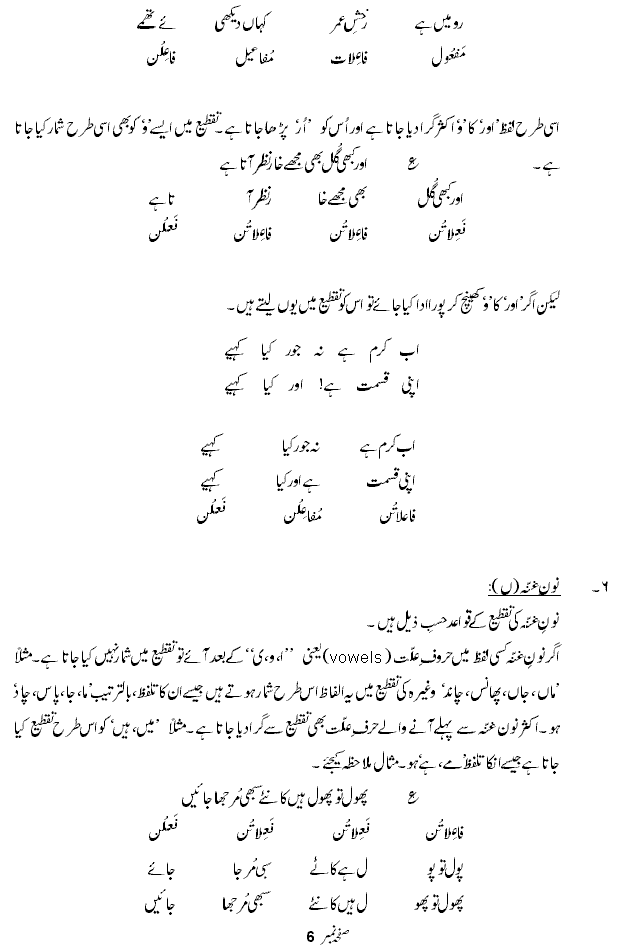 رو میں ہے رَخشِ عمر کہاں دیکھی ئے تھمے
مَفعُول فاعِلات مُفاعیل فاعِلُن
اسی طرح لفظ ’اور‘ کا ’و‘ اکثر گرا دیا جاتا ہے اور اُس کو ’اُر‘ پڑھا جاتا ہے۔ تقطیع میں ایسے ’و‘ کو بھی اسی طرح شمار کیا جاتا
ہے۔ ع اور کبھی گُل بھی مجھے خار نظر آتا ہے
اور کبھی گُل بھی مجھے خا رنظر آ تا ہے
فَعِلاتُن فاعِلاتُن فاعِلاتُن فَعلُن
لیکن اگر ’اور‘ کا ’و‘ کھینچ کر پورا ادا کیا جائے تو اس کو تقطیع میں یوں لیتے ہیں۔
اب کرم ہے نہ جور کیا کہیے
اپنی قسمت ہے! اور کیا کہیے
اب کرم ہے نہ جور کیا کہیے
اپنی قسمت ہے اور کیا کہیے
فاعلاتُن مُفاعِلُن فَعلُن
۶۔ نونِ غنّہ (ں):
نونِ غنّہ کی تقطیع کے قواعد حسبِ ذیل ہیں۔
اگر نونِ غنّہ کسی لفظ میں حروفِ علّت (vowels) یعنی ’’ا، و، ی‘‘ کے بعد آئے تو تقطیع میں شمار نہیں کیا جاتا ہے۔ مثلاً
’ماں، جاں، پھانس، چاند‘ وغیرہ کی تقطیع میں یہ الفاظ اس طرح شمار ہوتے ہیں جیسے ان کا تلفظ، بالترتیب ’ما، جا، پاس، چاد‘
ہو۔ اکثر نون غنّہ سے پہلے آنے والے حرفِ علّت بھی تقطیع سے گرا دیا جاتا ہے۔ مثلاً ’میں، ہیں‘ کو اس طرح تقطیع کیا
جاتا ہے جیسے انکا تلفظ ’مے، ہے‘ ہو۔ مثال ملاحظہ کیجئے۔
ع پھول تو پھول ہیں کانٹے سبھی مُرجھا جائیں
فاعِلاتُن فَعِلاتُن فَعِلاتُن فَعلُن
پول تو پو ل ہے کاٹے سبی مُر جا جائے
پھول تو پھو ل ہیں کانٹے سبھی مُرجھا جائیں
صفحہ نمبر 6